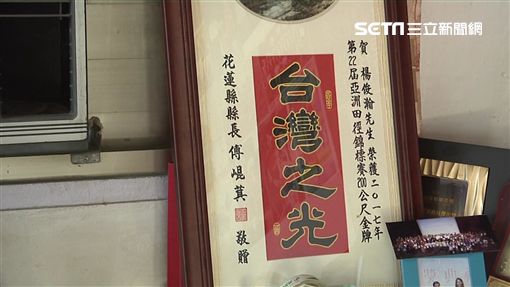 SETN 三立新聞網
賀 楊俊瀚先生 榮獲二〇一七年
第22屆亞洲田徑錦標賽200公尺金牌
台灣之光
花蓮縣縣長 傅崐萁 敬贈